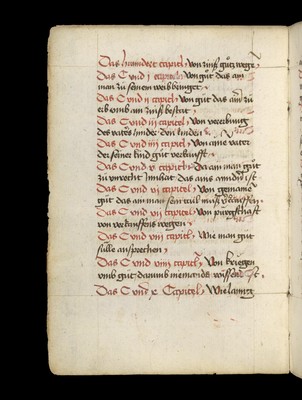 Das hundert capitel Von zinß gutz wege
Das C vnd j capitel Von gut das am
man zu seinem weib bringet
Das C vnd ij capitel Von gut das am zu
erb vmb am zinß bestat
Das C vnd iij capitel Von vererbung
des vaters hinder den kinden
Das C vnd iiij capitel Von aine vater
der seiner kind gut verkaufft
Das C vnd v capitel Da am man gut
zu vnrecht Innhat das ains andern ist
Das C vnd vj capitel Von gemaine
gut das am man sein tail muß verkauffen
Das C vnd vij capitel Von purgschafft
von verkauffens wegen
Das C vnd viij capitel Wie man gut
sulle ansprechen
Das C vnd viiij capitel Von kriegen
vmb gut darumb niemands wissend ist
Das C vnd x Capitel Wie lanng